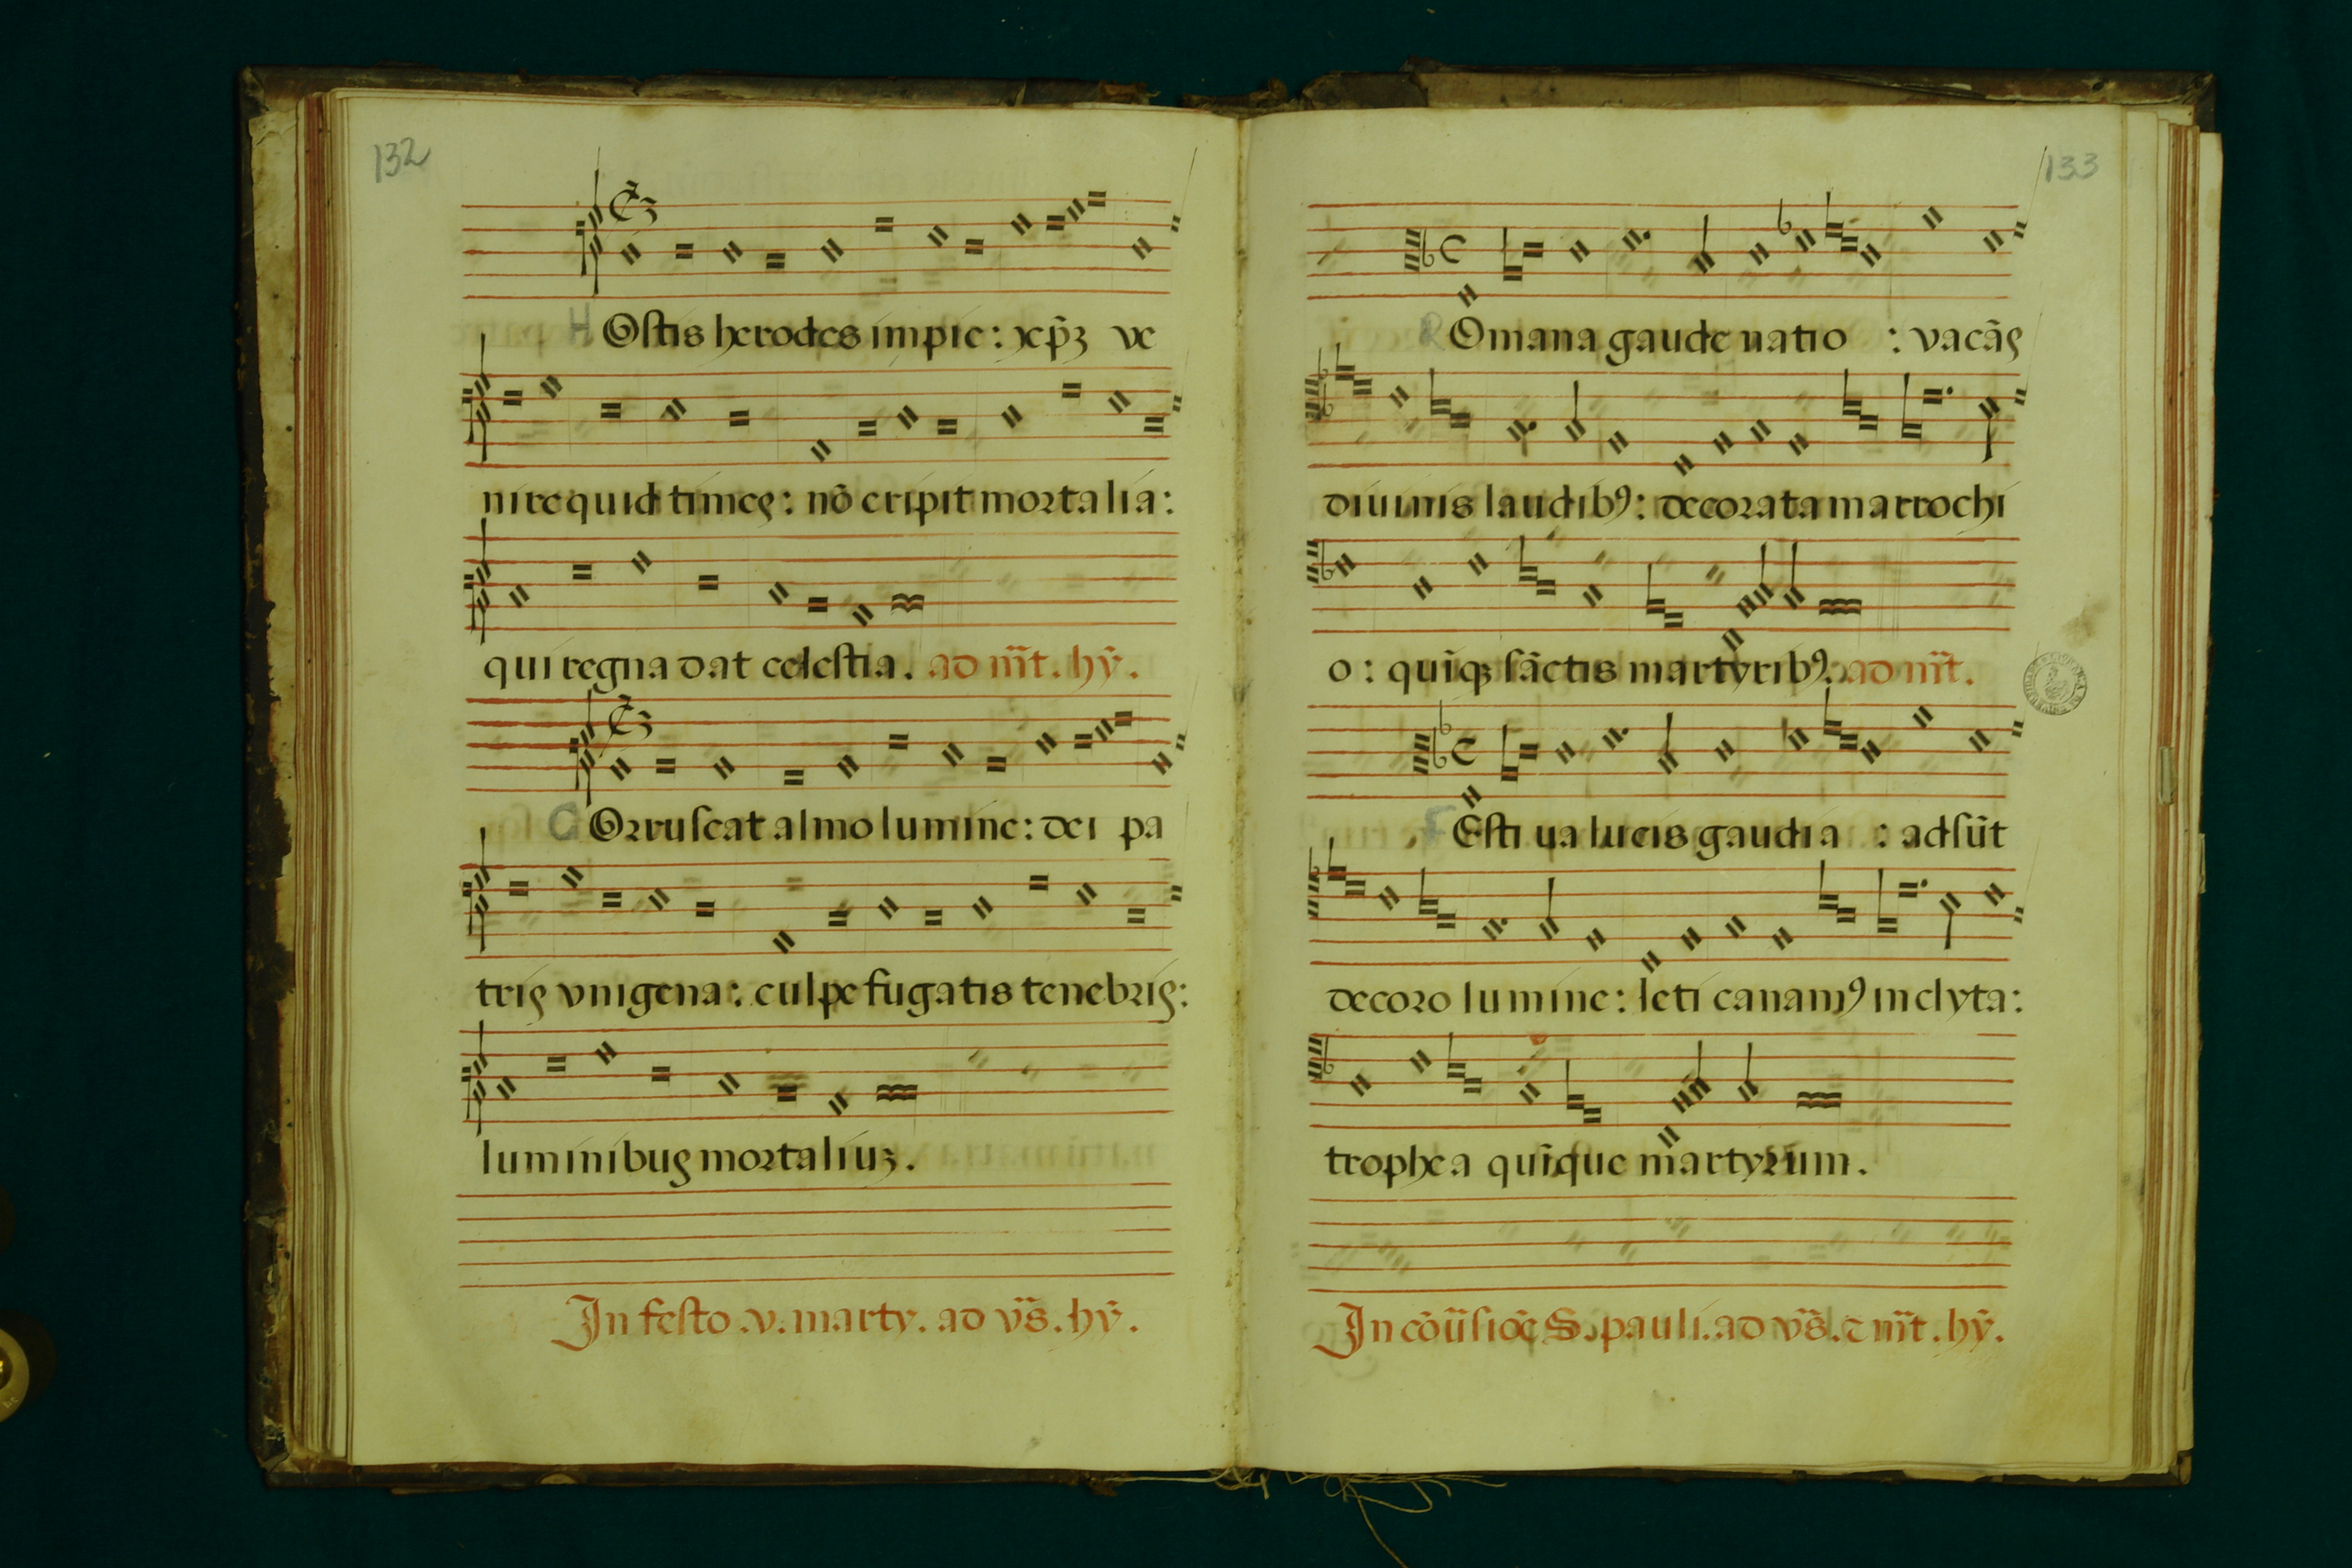 132
HOstis herodes impie: xp̄ꝫ ve
nire quid times: nō eripit mortalia:
qui regna dat celestia. ad nr̄t. hȳ.
COrruscat almo lumine: dei pa
tris vnigena: culpe fugatis tenebris:
luminibus mortaliuꝫ.
In festo .v. marty. ad vr̄s. hȳ.
133
ROmana gaude natio : vacās
diuinis laudibꝰ: decorata marrochi
o: quīqꝫ sāctis martyribꝰ. ad nr̄t.
FEsti ua lucis gaudia : adsūt
decoro lumine: leti canamꝰ inclyta:
trophea quīque martyrum.
In cōūsiōe S. pauli. ad vr̄s. ⁊ nr̄t. hȳ.